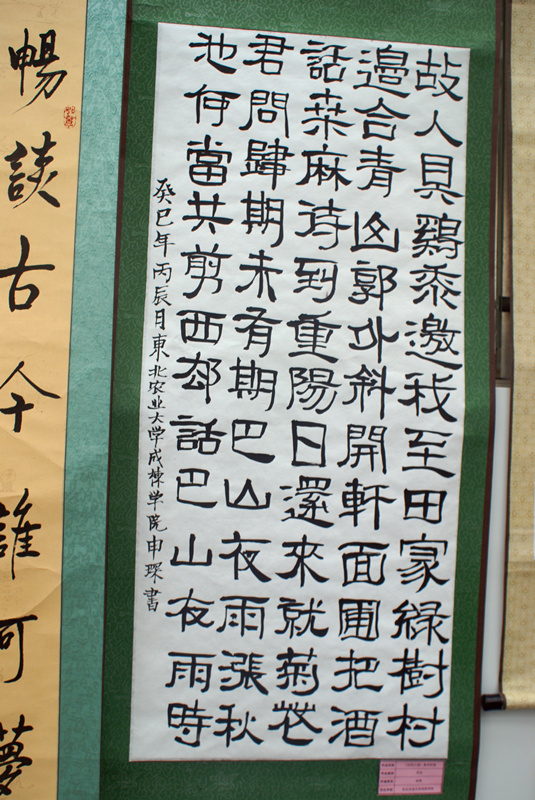 故人具鷄黍邀我至田家綠樹村
邊合青山郭外斜開軒面圃把酒
話桒麻待到重陽日還來就菊花
君問歸期未有期巴山夜雨漲秋
池何當共剪西却話巴山夜雨時
癸巳年丙辰月東北农业大学成棟学院申琛書
暢談古今誰可夢